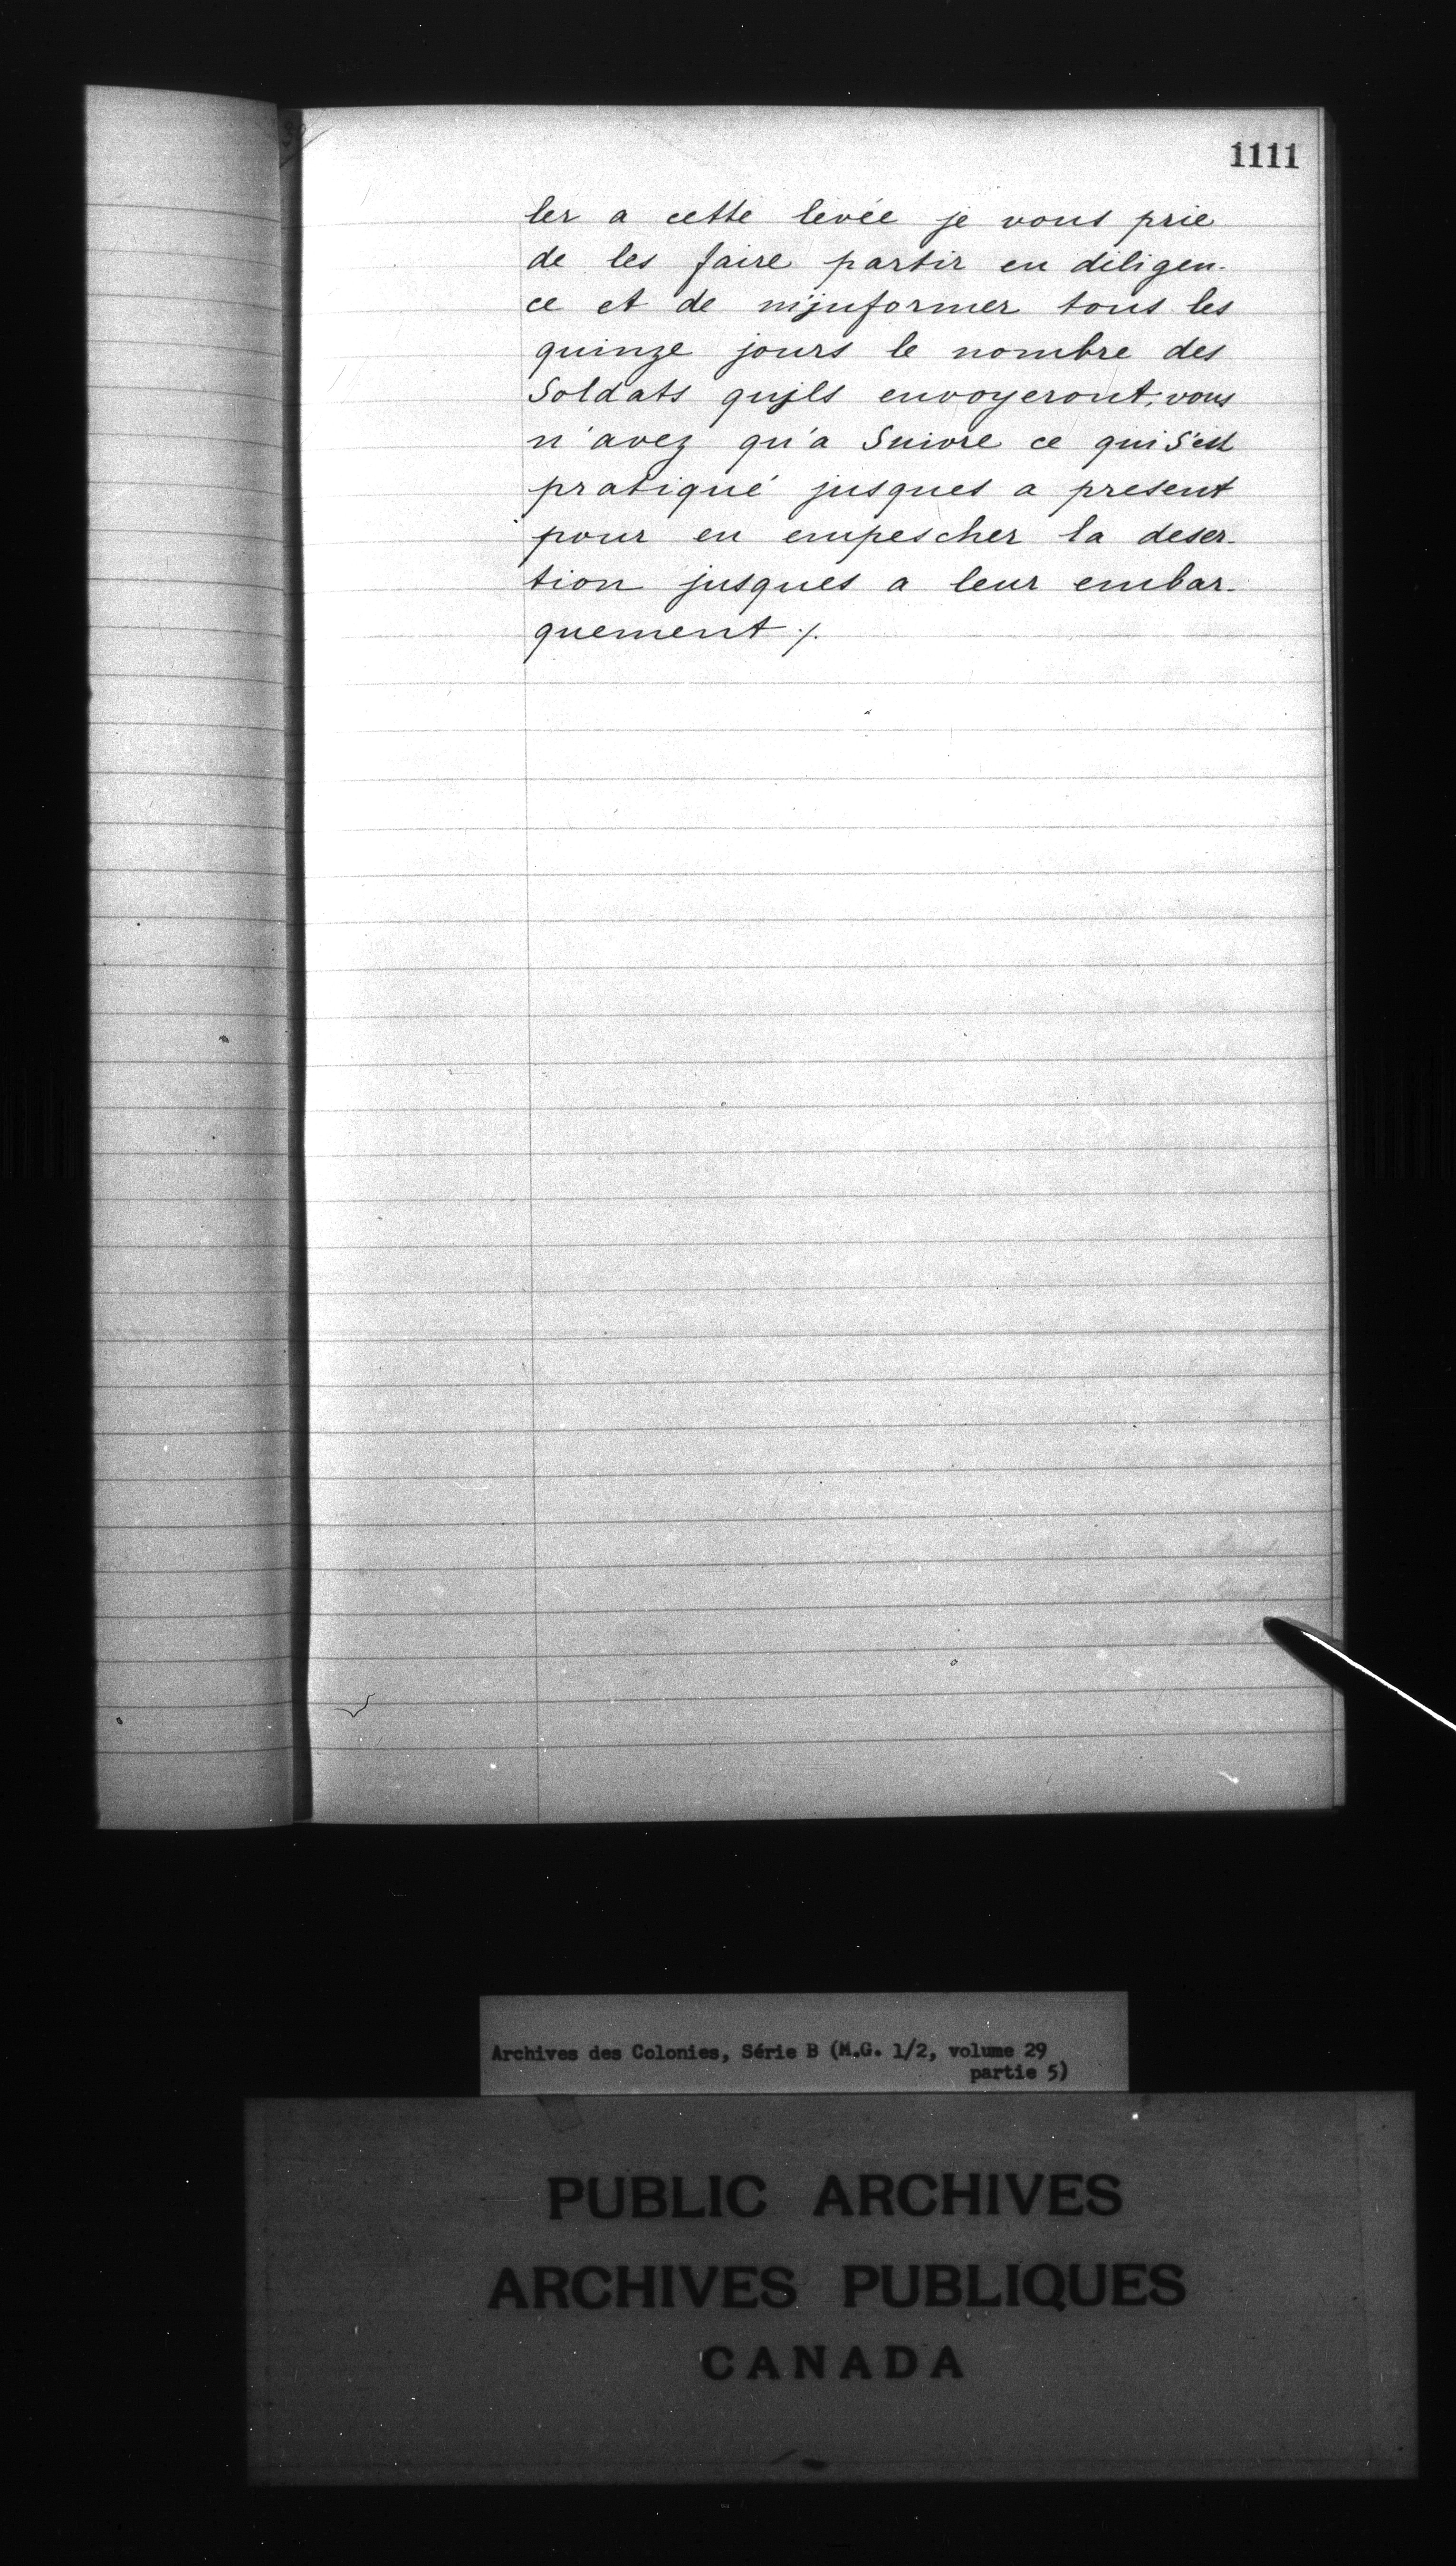 1111
ler a cette levée je vous prie
de les faire partir en diligen-
ce et de m'jnformer tous les
quinze jours le nombre des
Soldats qujls envoyeront, vous
n'avez qu'a Suivre ce qui S'est
pratiqué jusques a present
pour en empescher la deser-
tion jusques a leur embar-
quement ./.
Archives des Colonies, Série B (M.G. 1/2, volume 29
partie 5)
PUBLIC ARCHIVES
ARCHIVES PUBLIQUES
CANADA